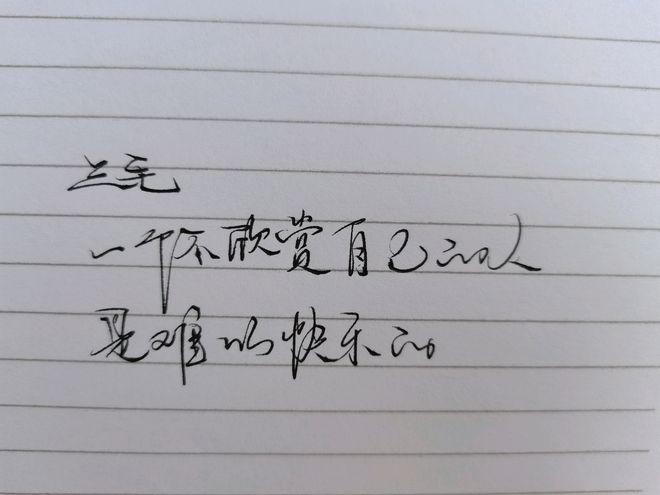 三毛
一个不欣赏自己的人
是难以快乐的